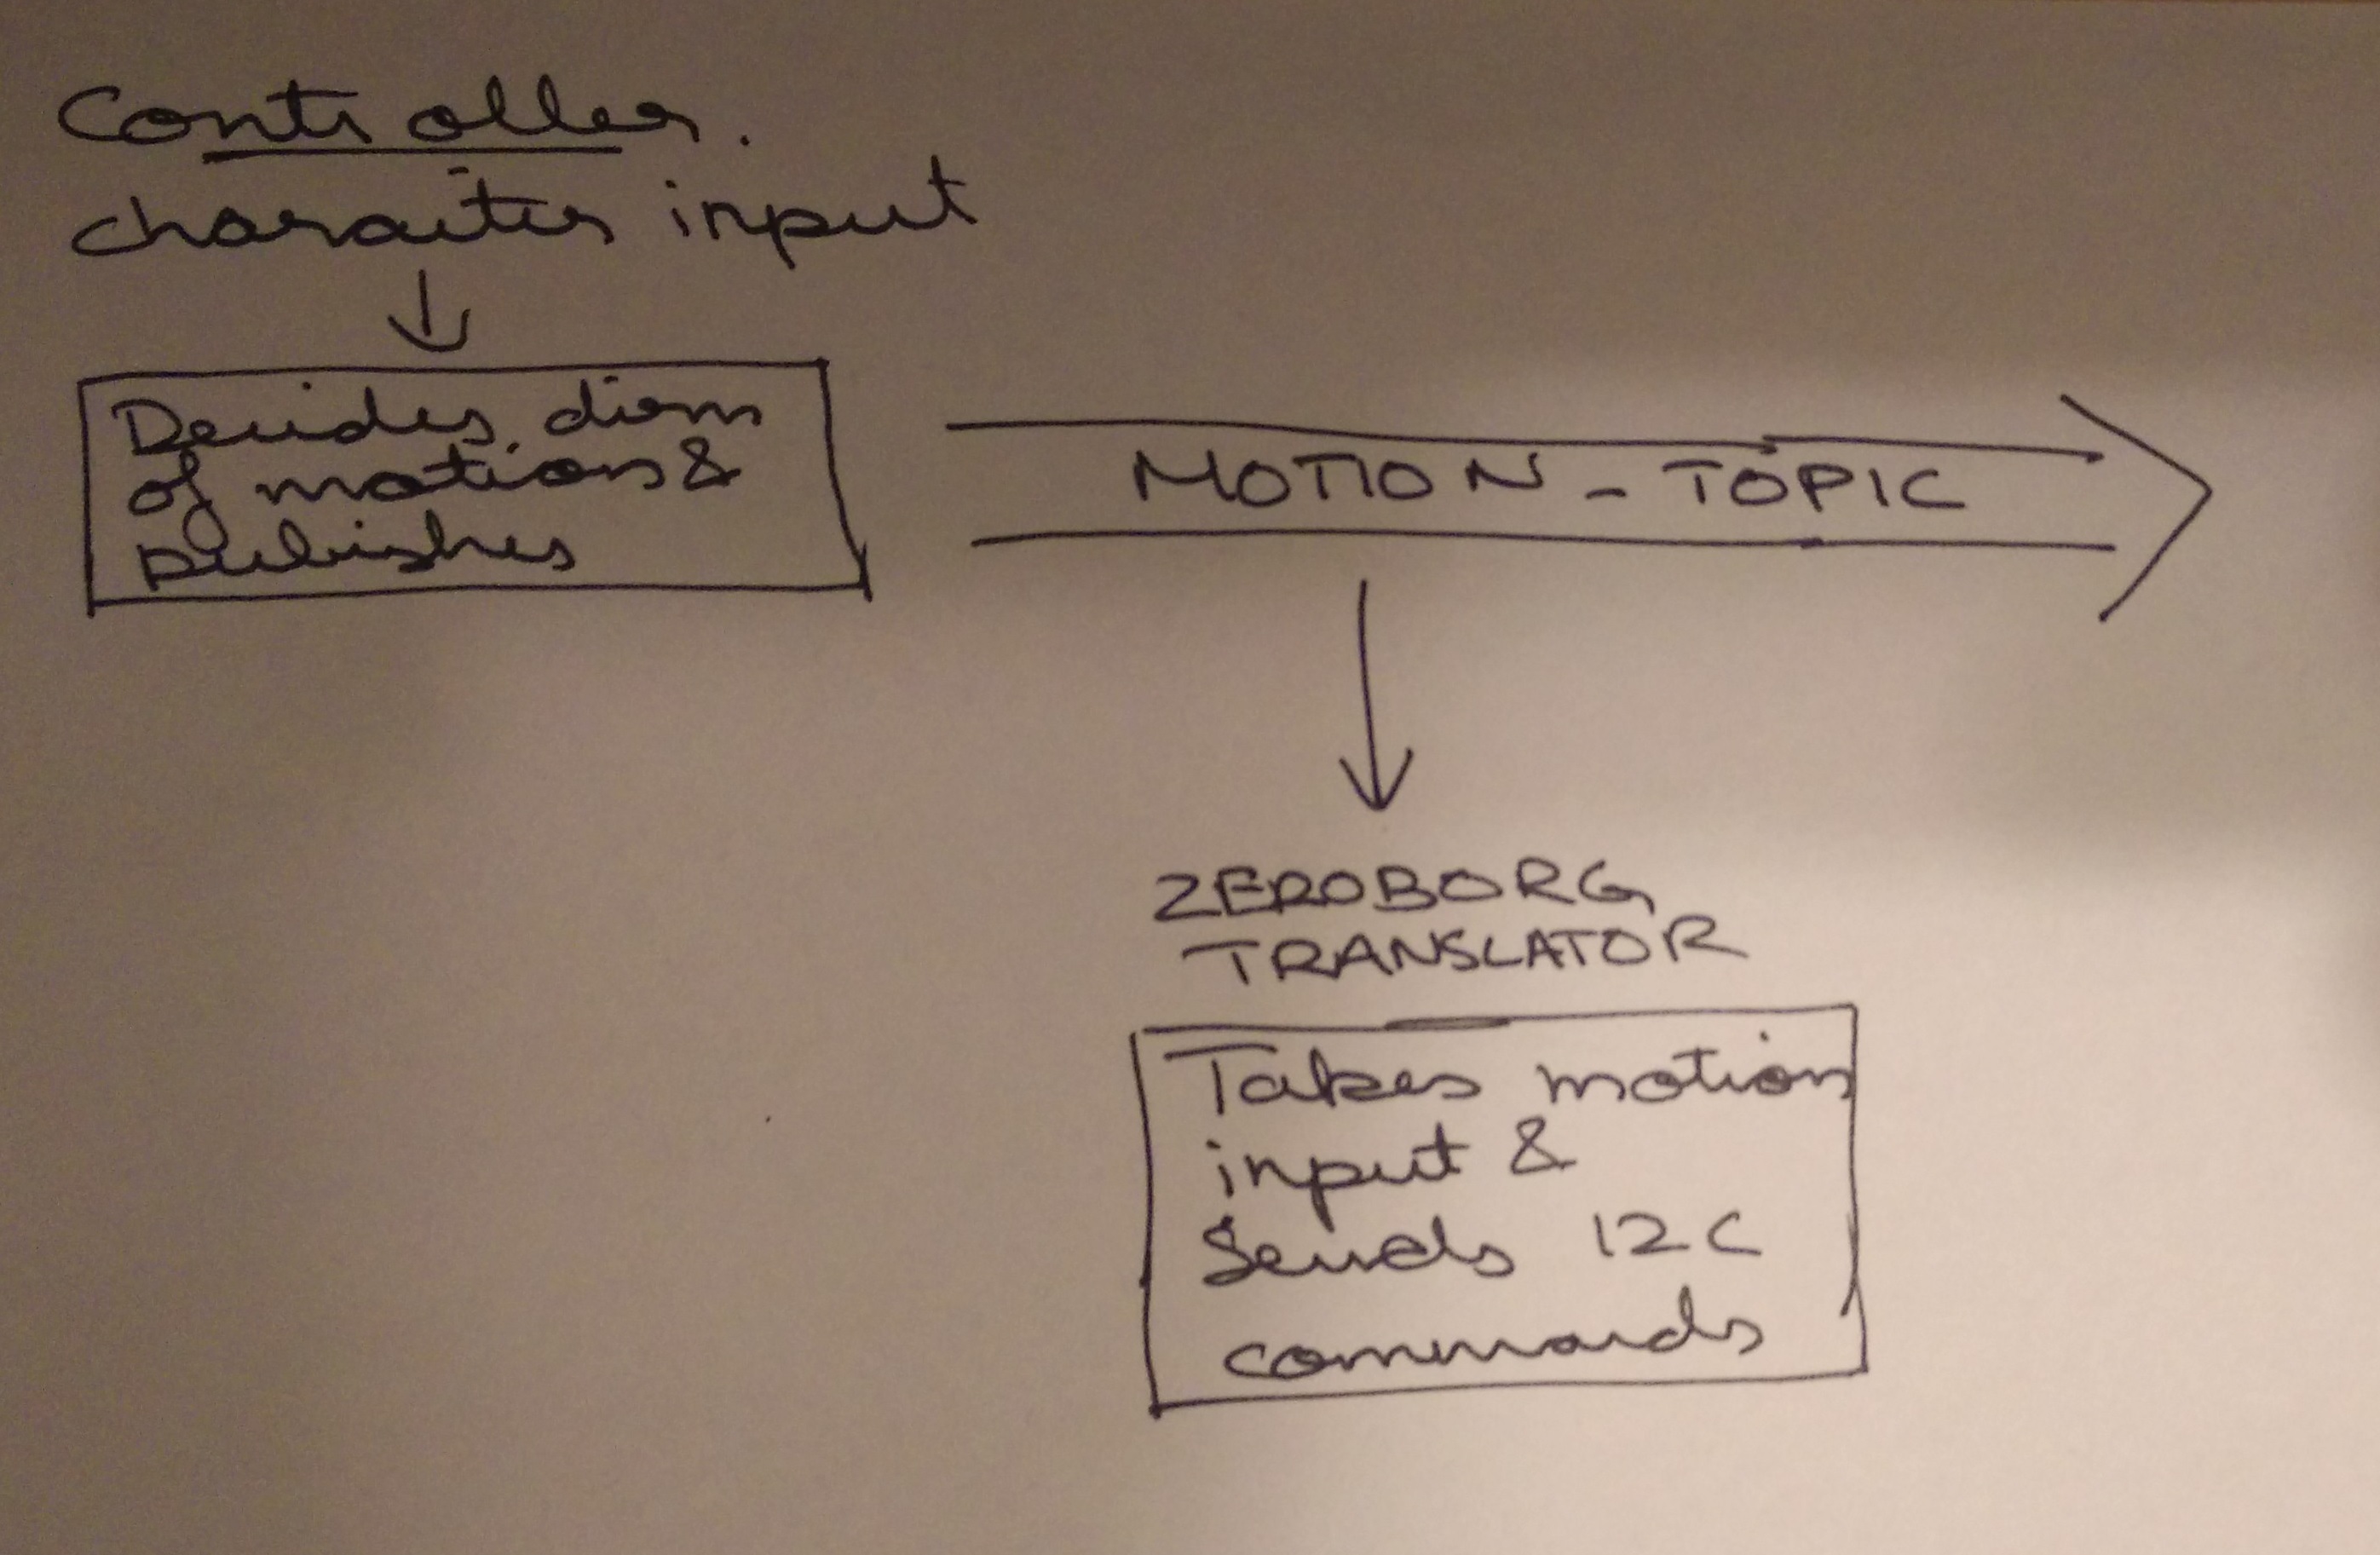 Controller.
character input
Decides dirn
of motion &
publishes
MOTION - TOPIC
ZEROBORG
TRANSLATOR
Takes motion
input &
Sends I2C
commands